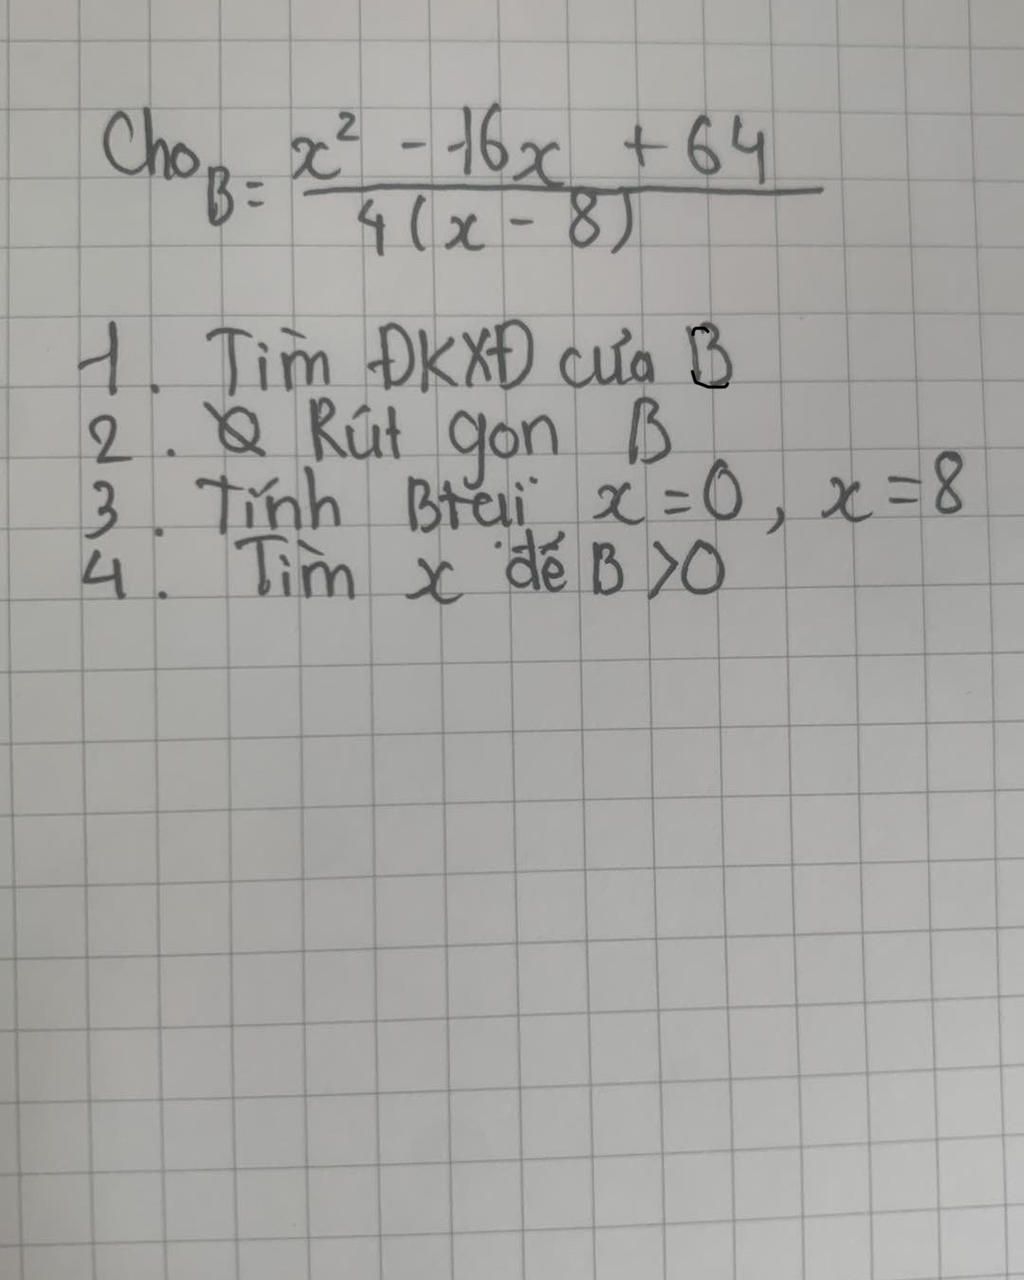 Cho B = x² - 16x + 64
4(x - 8)
1. Tìm ĐKXĐ của B
2. Rút gọn B
3. Tính B tại x = 0, x = 8
4. Tìm x để B > 0